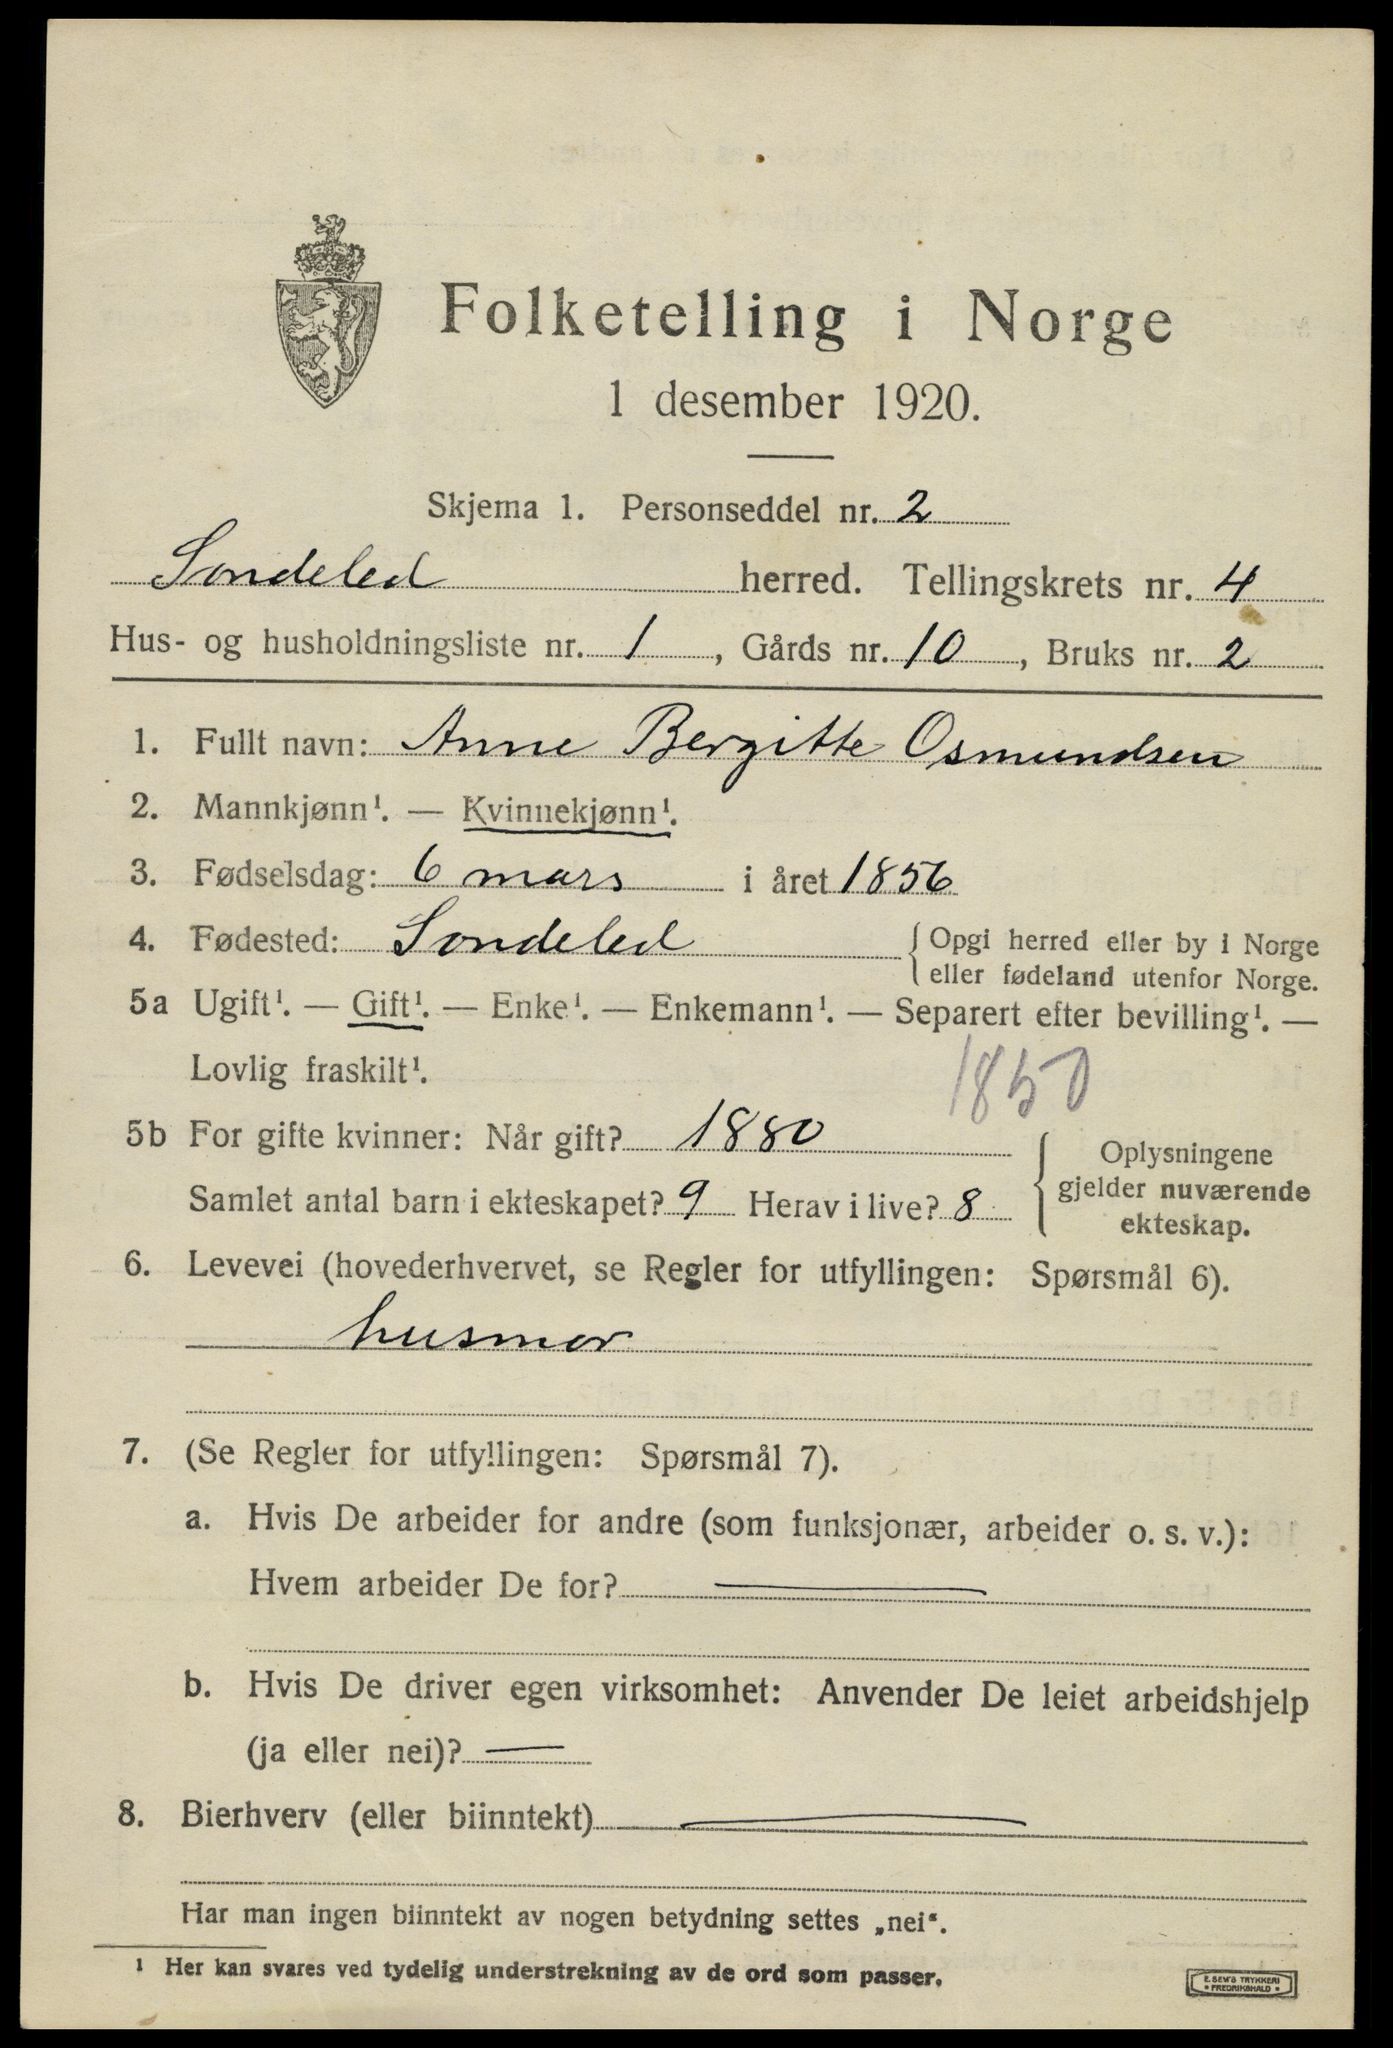 Folketelling i Norge
1 desember 1920.
Skjema 1. Personseddel nr. 2
Sondeled herred. Tellingskrets nr. 4
Hus- og husholdningsliste nr. 1, Gårds nr. 10, Bruks nr. 2
1. Fullt navn: Anne Bergitte Osmundsen
2. Mannkjønn¹. — Kvinnekjønn¹.
3. Fødselsdag: 6 mars i året 1856
4. Fødested: Sondeled { Opgi herred eller by i Norge
eller fødeland utenfor Norge.
5a Ugift¹. — Gift¹. — Enke¹. — Enkemann¹. — Separert efter bevilling¹. —
Lovlig fraskilt¹.
1850
5b For gifte kvinner: Når gift? 1880
Samlet antal barn i ekteskapet? 9 Herav i live? 8
{ Oplysningene
gjelder nuværende
ekteskap.
6. Levevei (hovederhvervet, se Regler for utfyllingen: Spørsmål 6).
husmor
7. (Se Regler for utfyllingen: Spørsmål 7).
a. Hvis De arbeider for andre (som funksjonær, arbeider o. s. v.):
Hvem arbeider De for? —
b. Hvis De driver egen virksomhet: Anvender De leiet arbeidshjelp
(ja eller nei)? —
8. Bierhverv (eller biinntekt) —
Har man ingen biinntekt av nogen betydning settes „nei“.
¹ Her kan svares ved tydelig understrekning av de ord som passer.
E. SEM'S TRYKKERI
• FREDRIKSHALD •